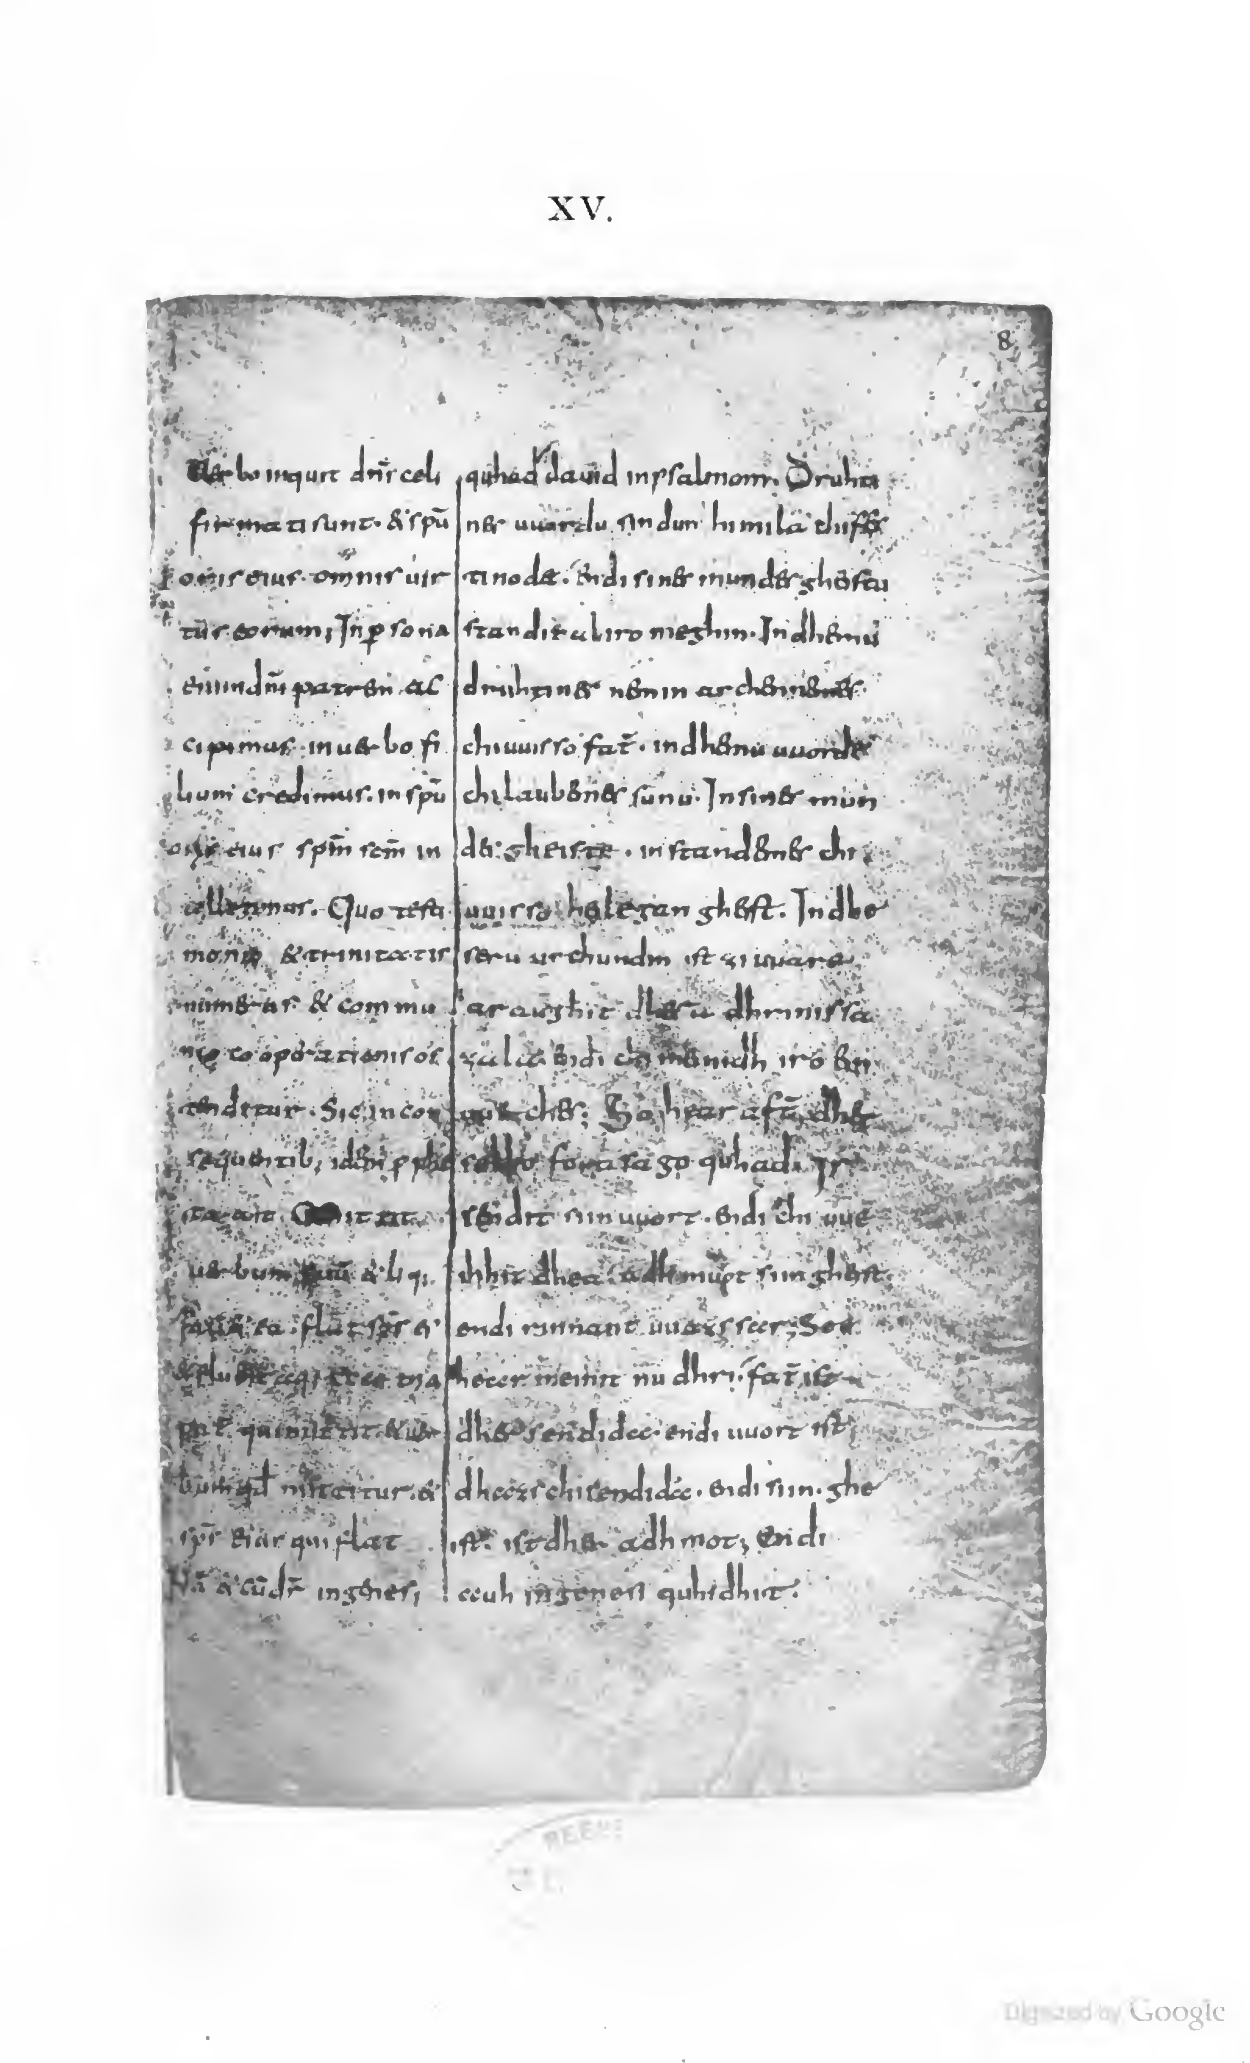 XV.
8
Uerbo inquit dn̄s celi
firmati sunt. & spū
oris eius omnis uir
tus eorum; In ꝑsona
eniim dn̄i patrem ac
cipimus. in uerbo fi
lium credimus. in spū
oris eius spm̄ scm̄ in
tellegimus. Quo testi
monio & trinitatis
numerus & commu
nio cooperationis os
tenditur. Sic in con
sequentib; idem prophe
ta ait. Mittit
uerbum suū & liqi
faciet ea. flat sps̄ eˈ
& fluent aquę. Ecce tria
pat̄. qui mittit. & uer
bum qd̄ mittitur. &
sps̄ eius qui flat
Nā & cū dr̄ in genesi
quhad dauid in psalmom. Druhti
nes uuordu sindun himila chifes
tinode. Endi sines mundes gheistu
standit al iro meghin. In dhemu
druhtines nemin archennemes
chiuuisso fat̄. in dhemu uuorde
chilaubemes sunu. In sines mun
des gheiste. instandemes chi
uuisso heilegan gheist. In dhe
seru urchundin ist ziuuare
araughit dhera dhrinissa
zala. endi chimeinidh iro uuer
uuerches; So hear aft̄ dher
selbo forasago quhad. Ir
sendit siin uuort. endi chi uue
ihhit dhea. adhmuot siin gheist
endi rinnant uuazssar; See
hear meinit nu dhri. fat̄ ist
dher sendida. endi uuort ist
dhazs chisendida. endi siin. ghe
ist. ist dher adhmot; Endi
auh in genesi quhidhit.
Digitized by Google